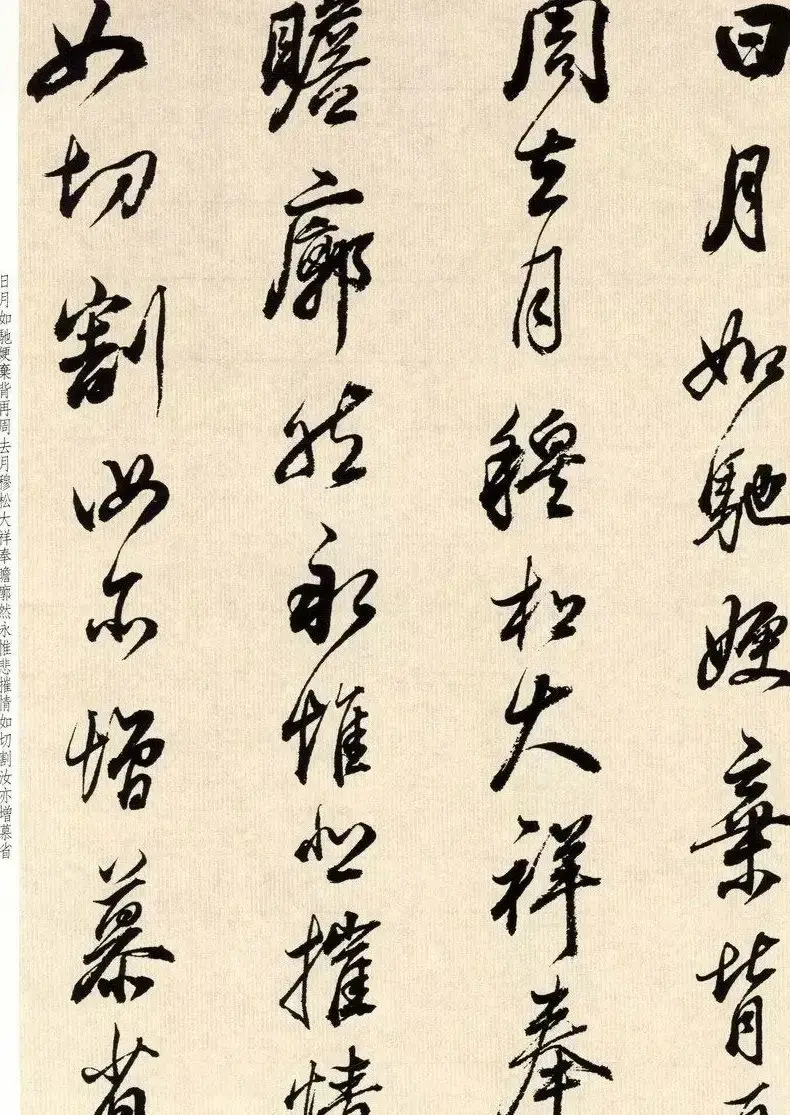 日月如馳嫂棄背再
周去月穆松大祥奉
瞻廓然永惟悲摧情
如切割汝亦增慕省
日月如馳嫂棄背再周去月穆松大祥奉瞻廓然永惟悲摧情如切割汝亦增慕省